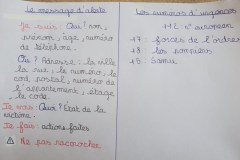 Le message d'alerte
Je suis : Qui ? nom,
prénom, âge, numéro
de téléphone.
Où ? Adresse : la ville,
la rue, le numéro, le
code postal, numéro de
l'appartement, étage,
le code.
Je vois : Quoi ? État de la
victime.
Je fais : actions faites
Ne pas raccrocher.
Les numéros d'urgences
112 n° européen
17 forces de l'ordre
18 les pompiers
15 Samu